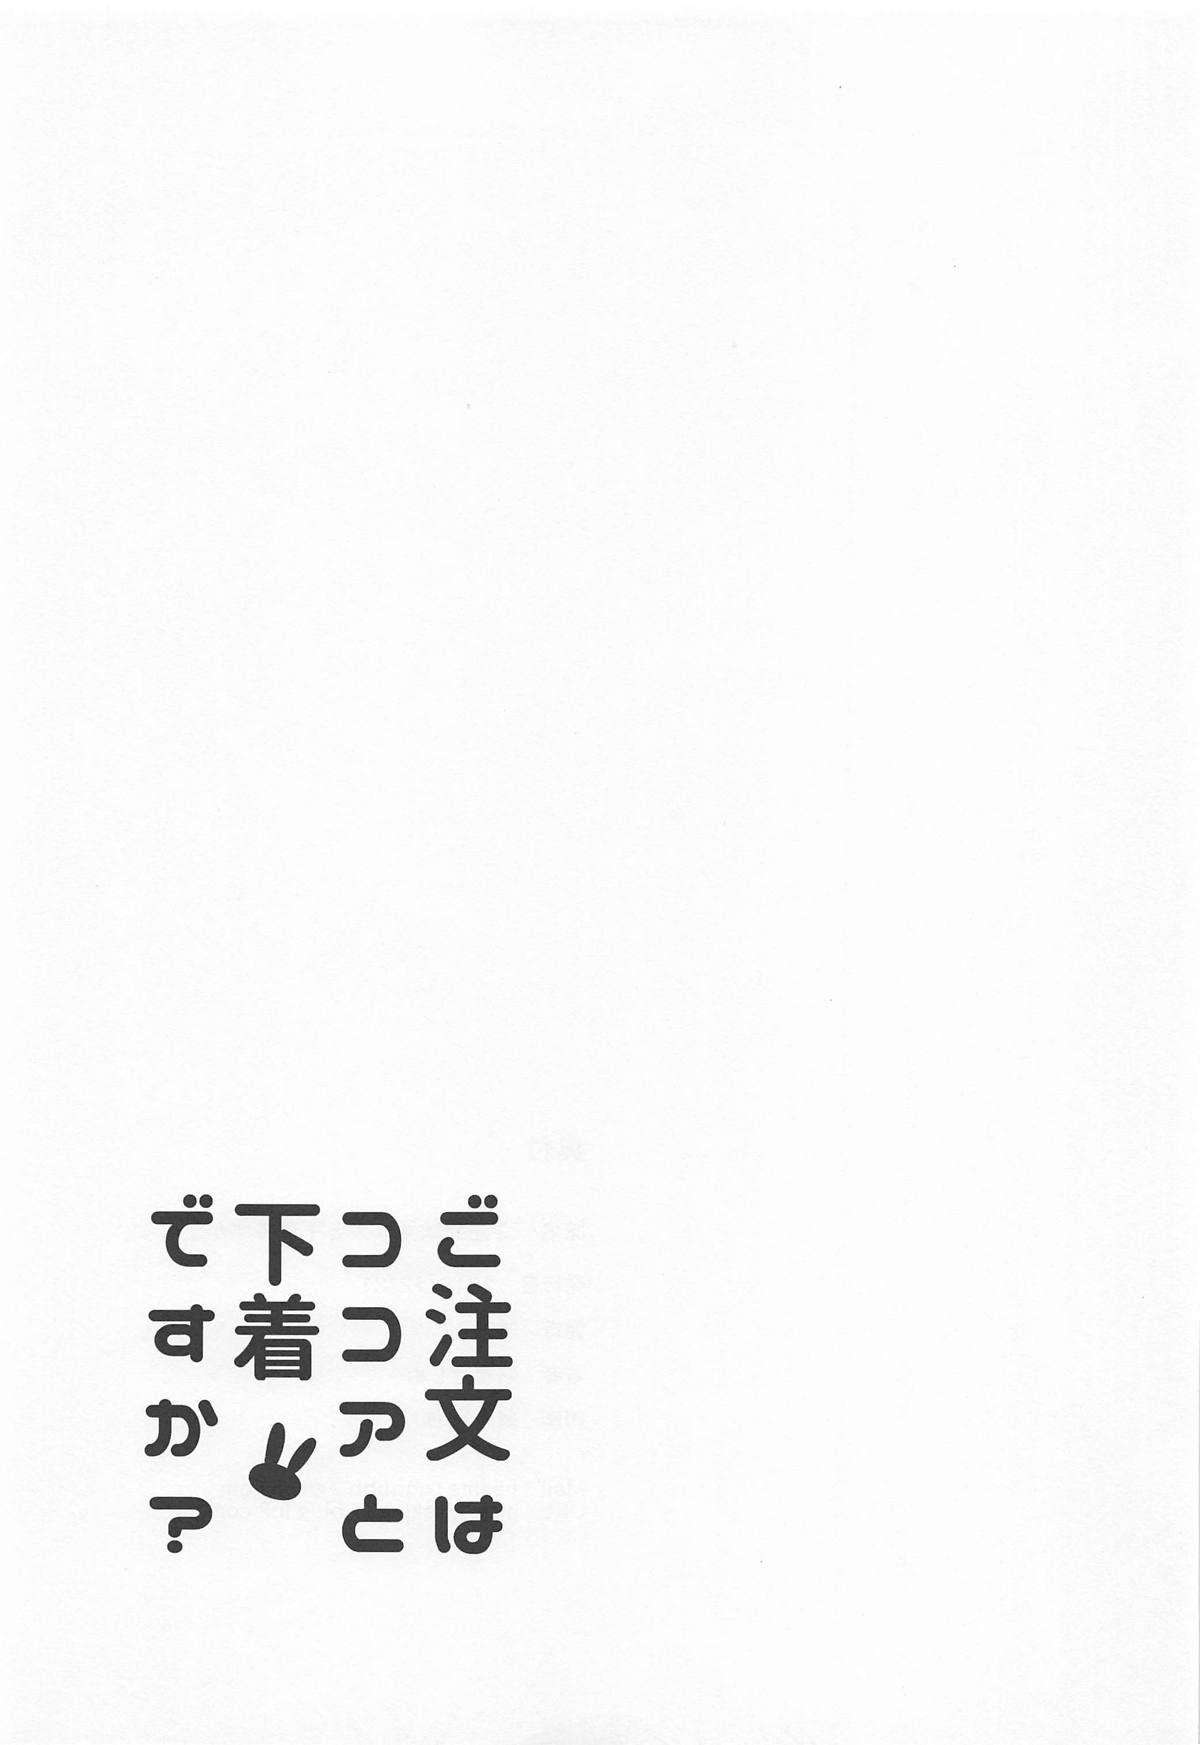 ご注文は
ココアと
下着
ですか？